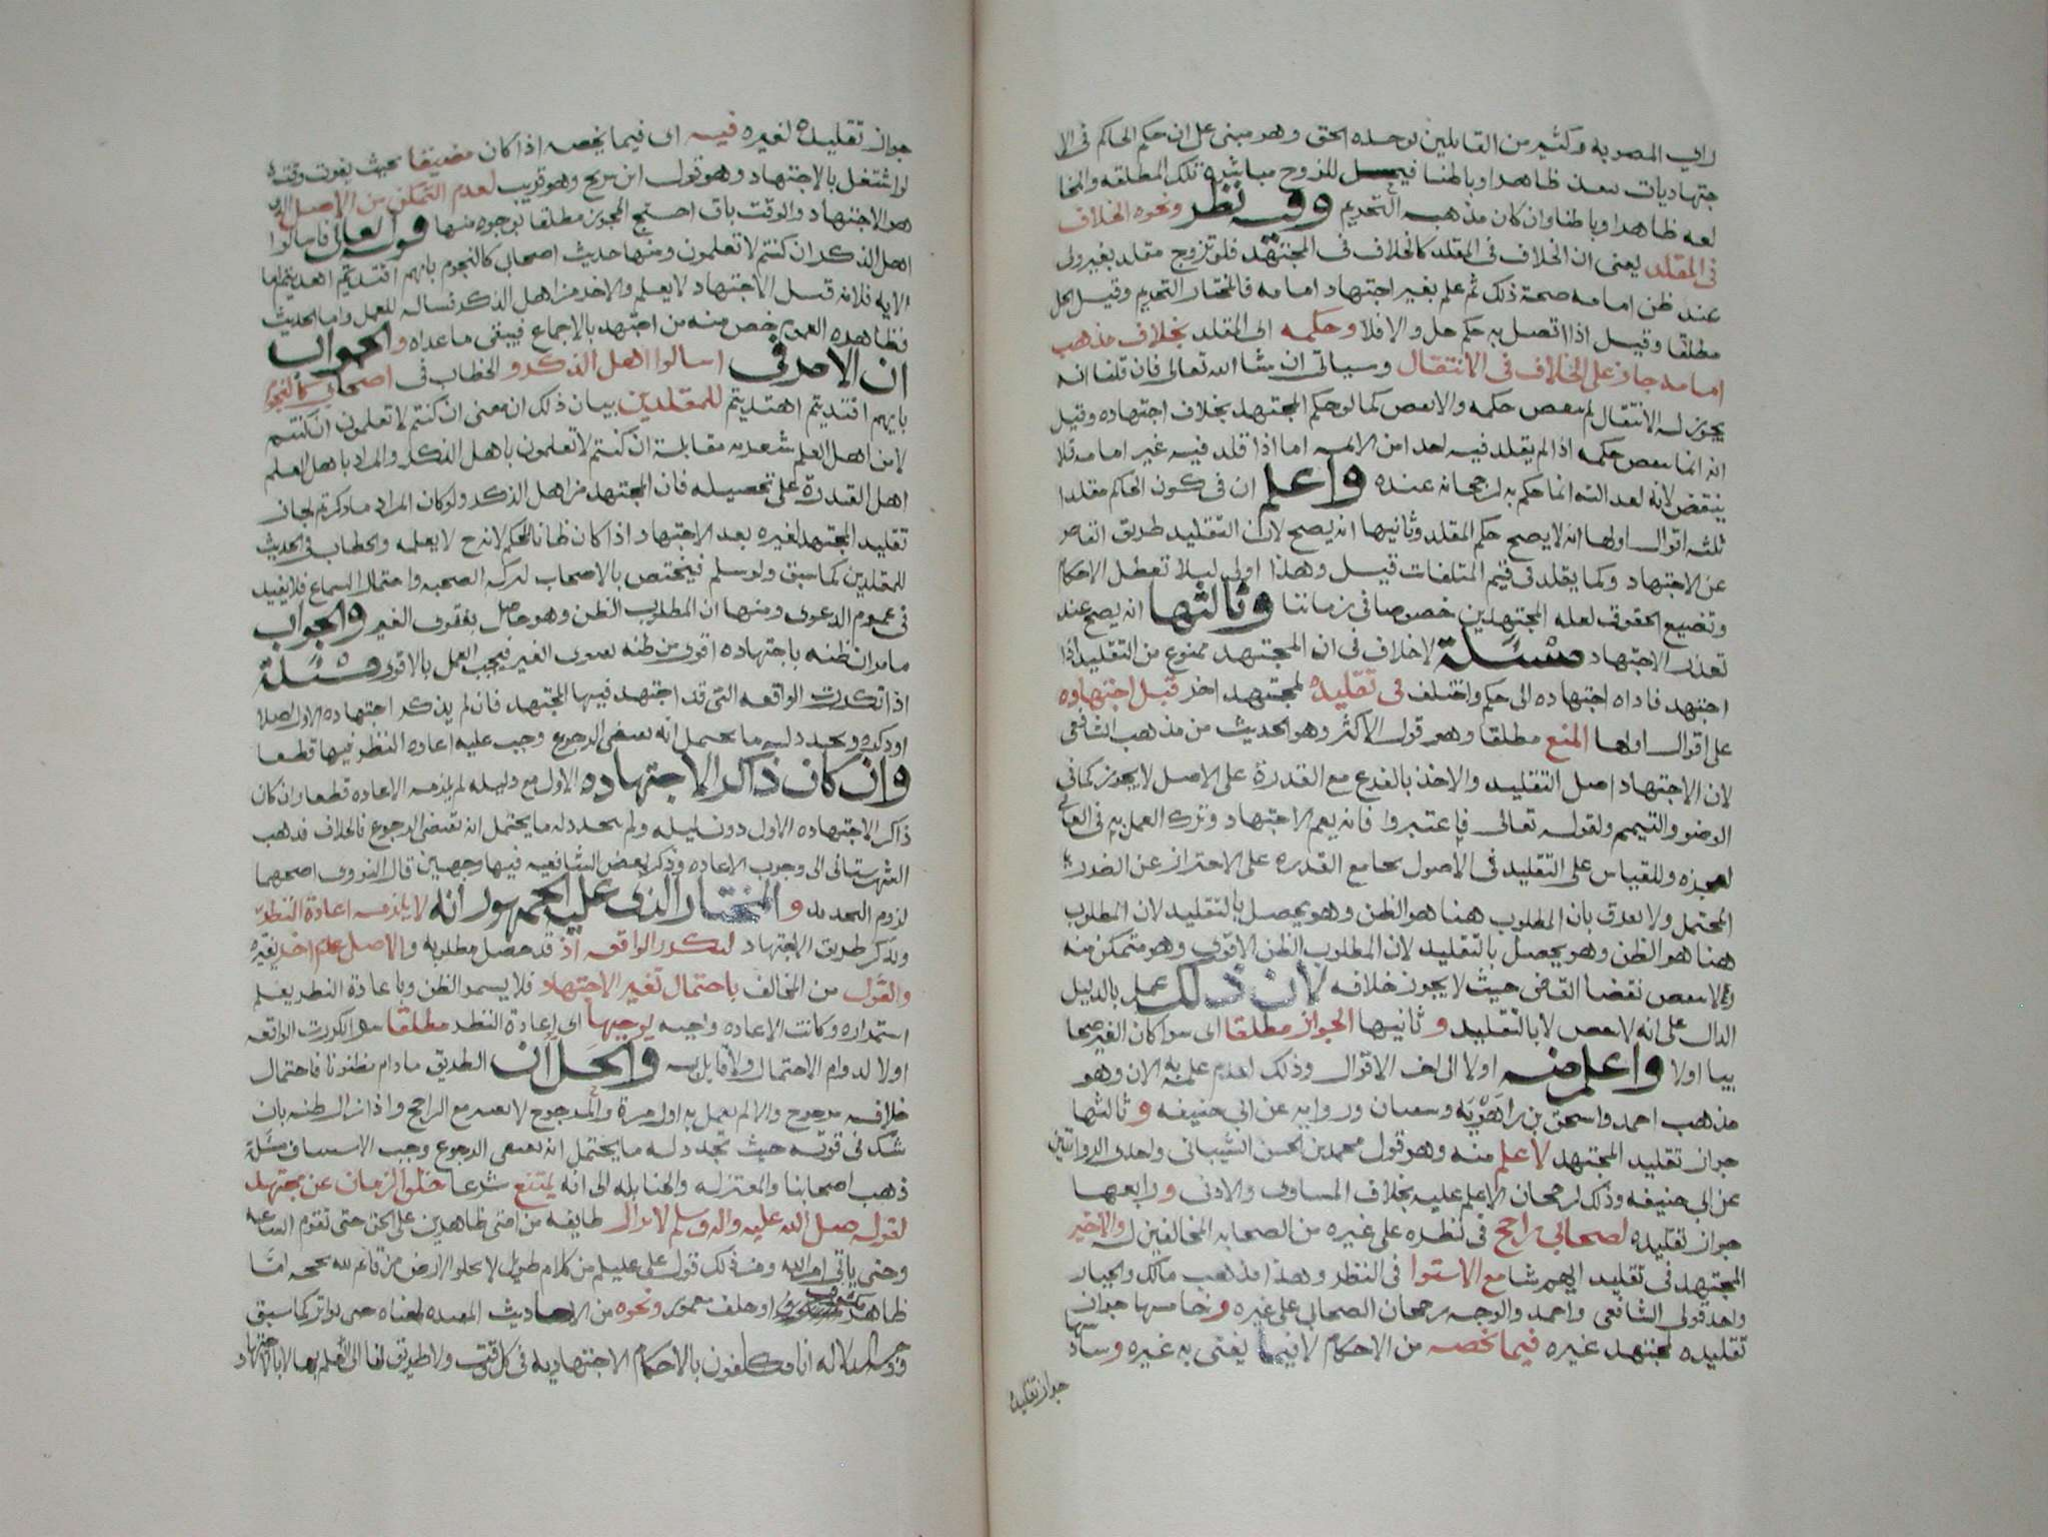 راي المصوبه وكثير من القايلين بوحده الحق وهو مبنى على ان حكم الحاكم فى الا
جتهاديات ينفذ ظاهرا وباطنا فيحل للزوج مباشرة تلك المطلقه والمخا
لعه ظاهرا وباطنا وان كان مذهبه التحريم وفيه نظر ونحوه الخلاف
فى المقلد يعنى ان الخلاف فى المقلد كالخلاف فى المجتهد فلو تزوج مقلد بغير ولى
عند ظن امامه صحة ذلك ثم علم بغير اجتهاد امامه فالمختار التحريم وقيل الحل
مطلقا وقيل اذا اتصل به حكم حل والا فلا وحكمه اى المقلد بخلاف مذهب
امامه جار على الخلاف فى الانتقال وسياتى ان شا الله تعالى فان قلنا انه
يجوز له الانتقال لم ينقض حكمه والا نقض كما لو حكم المجتهد بخلاف اجتهاده وقيل
انه انما ينقض حكمه اذا لم يقلد فيه احدا من الايمه اما اذا قلد فيه غير امامه فلا
ينقض لانه لعدالته انما حكم به لرجحانه عنده واعلم ان فى كون الحاكم مقلدا
ثلثه اقوال اولها انه لا يصح حكم المقلد وثانيها انه يصح لان التقليد طريق القاصر
عن الاجتهاد وكما يقلد فى قيم المتلفات قيل وهذا اولى ليلا تعطل الاحكام
وتضيع الحقوق لقله المجتهدين خصوصا فى زماننا وثالثها انه يصح عند
تعذر الاجتهاد مسئلة لا خلاف فى ان المجتهد ممنوع من التقليد اذا
اجتهد فاداه اجتهاده الى حكم واختلف فى تقليده لمجتهد اخر قبل اجتهاده
على اقوال اولها المنع مطلقا وهو قول الاكثر وهو الحديث من مذهب الشافعى
لان الاجتهاد اصل التقليد والاخذ بالفرع مع القدرة على الاصل لا يجوز كما فى
الوضو والتيمم ولقوله تعالى فاعتبروا فانه يعم الاجتهاد وترك العمل به فى العامى
لعجزه وللقياس على التقليد فى الاصول بجامع القدره على الاحتراز عن الضرر
المحتمل ولا يفرق بان المطلوب هنا هو الظن وهو يحصل بالتقليد لان المطلوب
هنا هو الظن وهو يحصل بالتقليد لان المطلوب الظن الاقوى وهو متمكن منه
ولا ينقض نقضا القاضى حيث لا يجوز خلافه لان ذلك عمل بالدليل
الدال على انه لا ينقض لا بالتقليد وثانيها الجواز مطلقا اى سوا كان الغير صحا
بيا او لا واعلم منه او لا الى اخر الاقوال وذلك لعدم علمه به الان وهو
مذهب احمد واسحق بن راهويه وسفيان وروايه عن ابى حنيفه وثالثها
جواز تقليد المجتهد لاعلم منه وهو قول محمد بن الحسن الشيبانى واحدى الروايتين
عن ابى حنيفه وذلك لرجحان الاعلم عليه بخلاف المساوى والادنى ورابعها
جواز تقليده لصحابى راجح فى نظره على غيره من الصحابه المخالفين له والا خير
المجتهد فى تقليد ايهم شا مع الاستوا فى النظر وهذا مذهب مالك والجبائى
واحد قولى الشافعى واحمد والوجه رجحان الصحابى على غيره وخامسها جواز
تقليده لمجتهد غيره فيما يخصه من الاحكام لا فيما يفتى به غيره وسادسها
جواز تقليده
جواز تقليده لغيره فيه اى فيما يخصه اذا كان مضيقا بحيث يفوت وقته
لو اشتغل بالاجتهاد وهو قول ابن سريج وهو قريب لعدم التمكن من الاصل الذى
هو الاجتهاد والوقت باق احتج المجوز مطلقا بوجوه منها قوله تعالى فاسالوا
اهل الذكر ان كنتم لا تعلمون ومنها حديث اصحابى كالنجوم بايهم اقتديتم اهتديتم اما
الايه فلانه قبل الاجتهاد لا يعلم والاخذ من اهل الذكر نساله للعمل واما الحديث
فظاهره العموم خص منه من اجتهد بالاجماع فيبقى ما عداه والجواب
ان الامر فى اسالوا اهل الذكر والخطاب فى اصحابى كالنجوم
بايهم اقتديتم اهتديتم للمقلدين بيان ذلك ان معنى ان كنتم لا تعلمون ان كنتم
لا من اهل العلم شعر به مقابلة ان كنتم لا تعلمون باهل الذكر والمراد باهل العلم
اهل القدرة على تحصيله فان المجتهد من اهل الذكر ولو كان المراد ما ذكرتم لجاز
تقليد المجتهد لغيره بعد الاجتهاد اذا كان ظانا للحكم لانه ح لا يعلمه والخطاب فى الحديث
للمقلدين كما سبق ولو سلم فيختص بالاصحاب لبركة الصحبه واحتمال السماع فلا يفيد
فى عموم الدعوى ومنها ان المطلوب الظن وهو حاصل بفتوى الغير والجواب
ما مر ان ظنه باجتهاده اقوى من ظنه بفتوى الغير فيجب العمل بالاقوى مسئلة
اذا تكررت الواقعه التى قد اجتهد فيها المجتهد فان لم يذكر اجتهاده الاول اصلا
او ذكره وتجدد له ما يحتمل انه يقتضى الرجوع وجب عليه اعاده النظر فيها قطعا
وان كان ذاكر الاجتهاده الاول مع دليله لم يلزمه الاعاده قطعا وان كان
ذاكر الاجتهاده الاول دون دليله ولم يتجدد له ما يحتمل انه يقتضى الرجوع فالخلاف فذهب
الشهرستانى الى وجوب الاعاده وذكر بعض الشافعيه فيها وجهين قال النووى اصحهما
لزوم التجديد والمختار الذى عليه الجمهور انه لا يلزمه اعادة النظر
وتذكر طريق الاجتهاد لتكرر الواقعه اذ قد حصل مطلوبه والاصل عدم اخر يغيره
والقول من المخالف باحتمال تغير الاجتهاد فلا يستمر الظن وباعادة النظر يعلم
استمراره وكانت الاعاده واجبه يوجبها اى اعادة النظر مطلقا سوا تكررت الواقعه
او لا لدوام الاحتمال ولا قايل به والحل ان الطريق ما دام مظنونا فاحتمال
خلافه مرجوح والا لم يعمل به اول مرة والمرجوح لا يعتبر مع الراجح واذا زال ظنه بان
شك فى قوته حيث تجدد له ما يحتمل انه يقتضى الرجوع وجب الاستيناف مسئلة
ذهب اصحابنا والمعتزله والحنابله الى انه يمتنع شرعا خلو الزمان عن مجتهد
لقوله صلى الله عليه واله وسلم لا تزال طايفه من امتى ظاهرين على الحق حتى تقوم الساعه
وحتى ياتى امر الله ومن ذلك قول على عليلم من كلام طويل لا تخلو الارض من قائم لله بحجه اما
ظاهر مشهور او خايف مغمور ونحوه من الاحاديث المفيده لمعناه حتى تواتر كما سبق
ووجه الدلاله انا مكلفون بالاحكام الاجتهاديه فى كل وقت ولا طريق لنا الى العلم بها الا بالاجتهاد